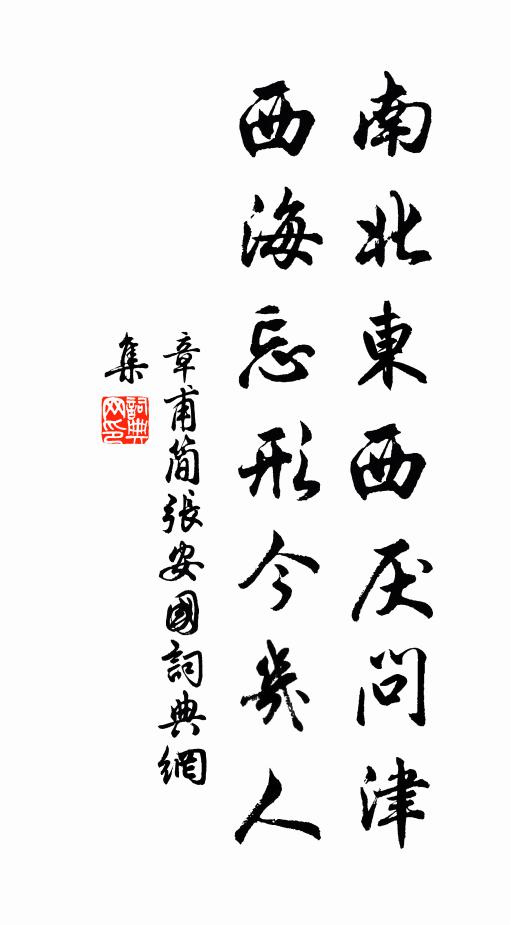 南北東西厌問津
西海忘形今幾人
章甫简張安國詞典網
集
詞典
网印